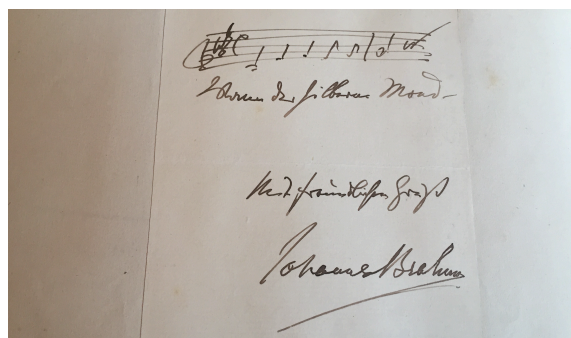 Wenn der silberne Mond –
Mit freundlichem Gruß
Johannes Brahms